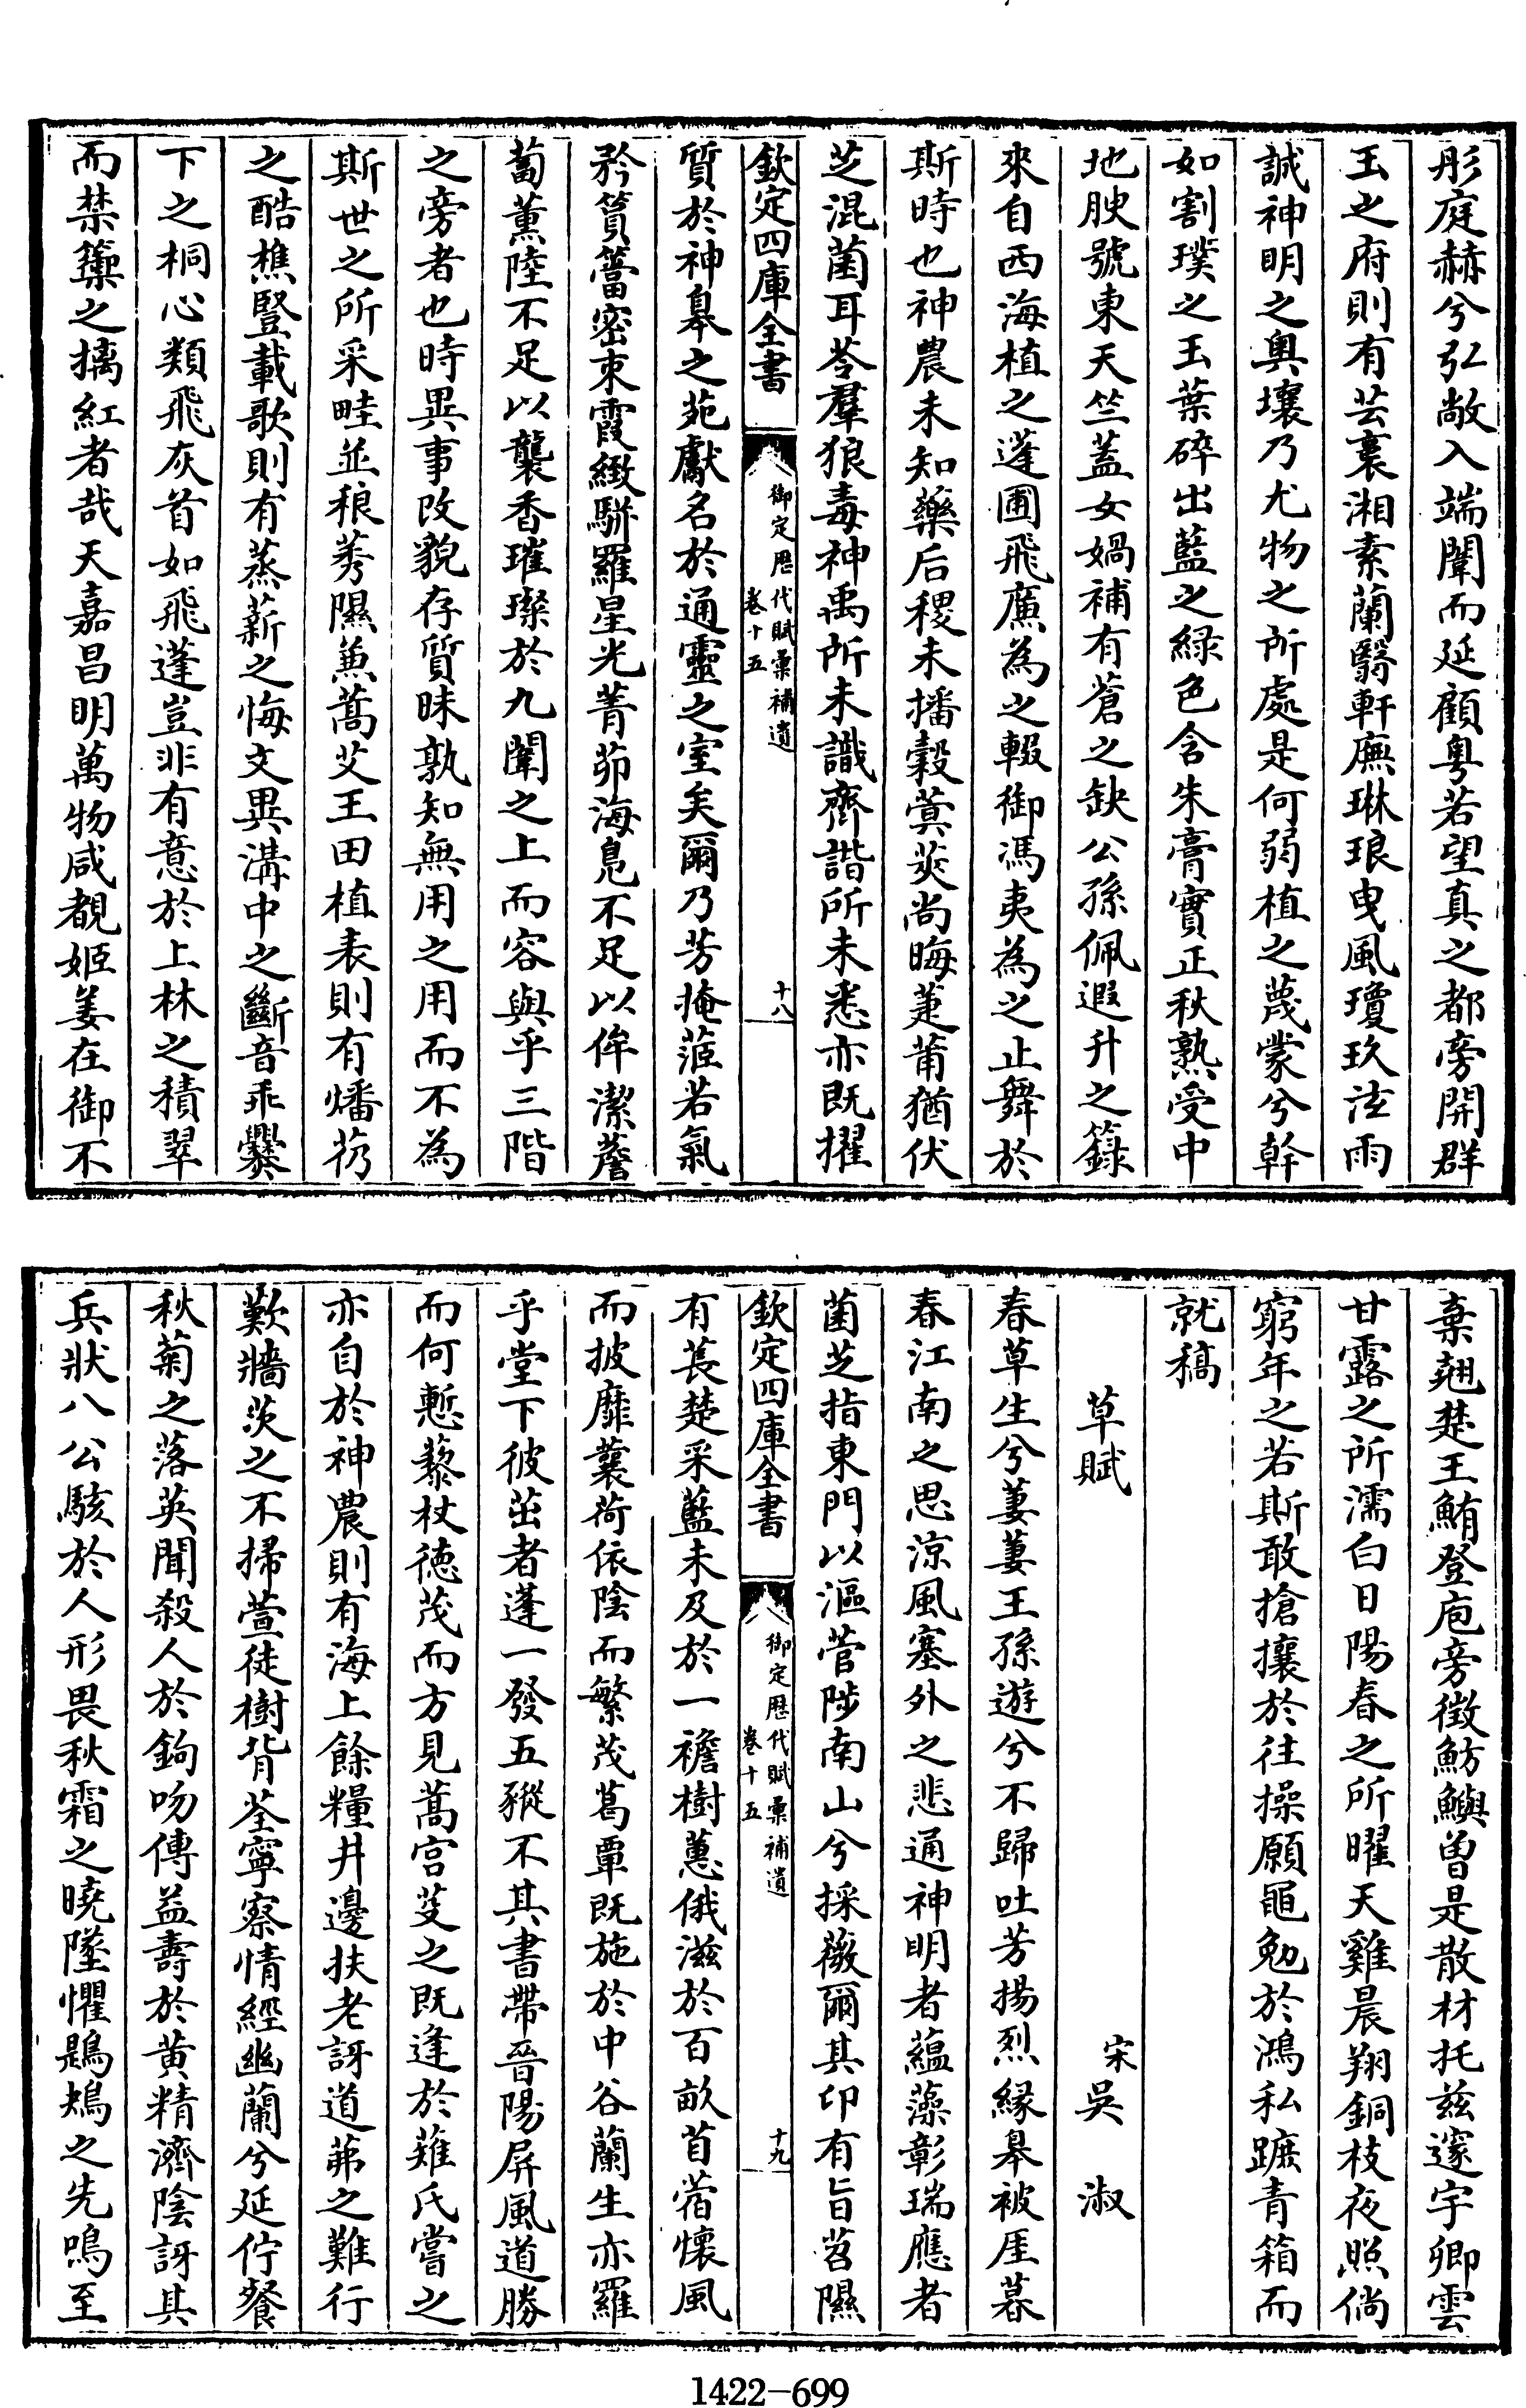 彤庭赫兮弘敞入端闈而延顧粤若望真之都旁開群
玉之府則有芸裛湘素蘭翳軒廡琳琅曳風瓊玖泫雨
誠神明之奥壤乃尤物之所處是何弱植之蔑蒙兮幹
如割璞之玉葉碎出藍之緑色含朱膏實正秋熟受中
地腴號東天竺蓋女媧補有蒼之缺公孫佩遐升之籙
來自西海植之蓬圃飛廉為之輟御馮夷為之止舞於
斯時也神農未知藥后稷未播穀蓂莢尚晦萐莆猶伏
芝混菌耳苓羣狼毒神禹所未識齊諧所未悉亦既擢
欽定四庫全書
御定歷代賦彙補遺
卷十五
十八
質於神皋之苑獻名於通靈之室矣爾乃芳掩茝若氣
矜篔簹密束霞緻駢羅星光菁茆海凫不足以侔潔蘑
蔔薰陸不足以襲香璀璨於九闈之上而容與乎三階
之旁者也時異事改貌存質昧孰知無用之用而不為
斯世之所采畦並稂莠隰兼蒿艾王田植表則有燔艿
之酷樵豎載歌則有蒸薪之悔文異溝中之斷音乖爨
下之桐心類飛灰首如飛蓬豈非有意於上林之積翠
而禁籞之摛紅者哉天嘉昌明萬物咸覩姬姜在御不
棄翹楚王鮪登庖旁徵魴鱮曽是散材托兹邃宇卿雲
甘露之所濡白日陽春之所曜天雞晨翔銅枝夜照倘
窮年之若斯敢搶攘於往操願黽勉於鴻私蹠青箱而
就稿
草賦
宋吳淑
春草生兮萋萋王孫遊兮不歸吐芳揚烈縁皋被厓暮
春江南之思涼風塞外之悲通神明者蘊藻彰瑞應者
菌芝指東門以漚菅陟南山兮採薇爾其卬有旨苕隰
欽定四庫全書
御定歷代賦彙補遺
卷十五
十九
有萇楚采藍未及於一襜樹蕙俄滋於百畝苜蓿懷風
而披靡蘘荷依陰而繁茂葛覃既施於中谷蘭生亦羅
乎堂下彼茁者蓬一發五豵不其書帶晉陽屏風道勝
而何慙藜杖徳茂而方見蒿宫芟之既逢於薙氏嘗之
亦自於神農則有海上餘糧井邊扶老訝道茀之難行
歎牆茨之不掃萱徒樹背荃寧察情經幽蘭兮延佇餐
秋菊之落英聞殺人於鉤吻傳益壽於黄精濟陰訝其
兵狀八公駭於人形畏秋霜之曉墜懼鶗鴂之先鳴至
1422-699